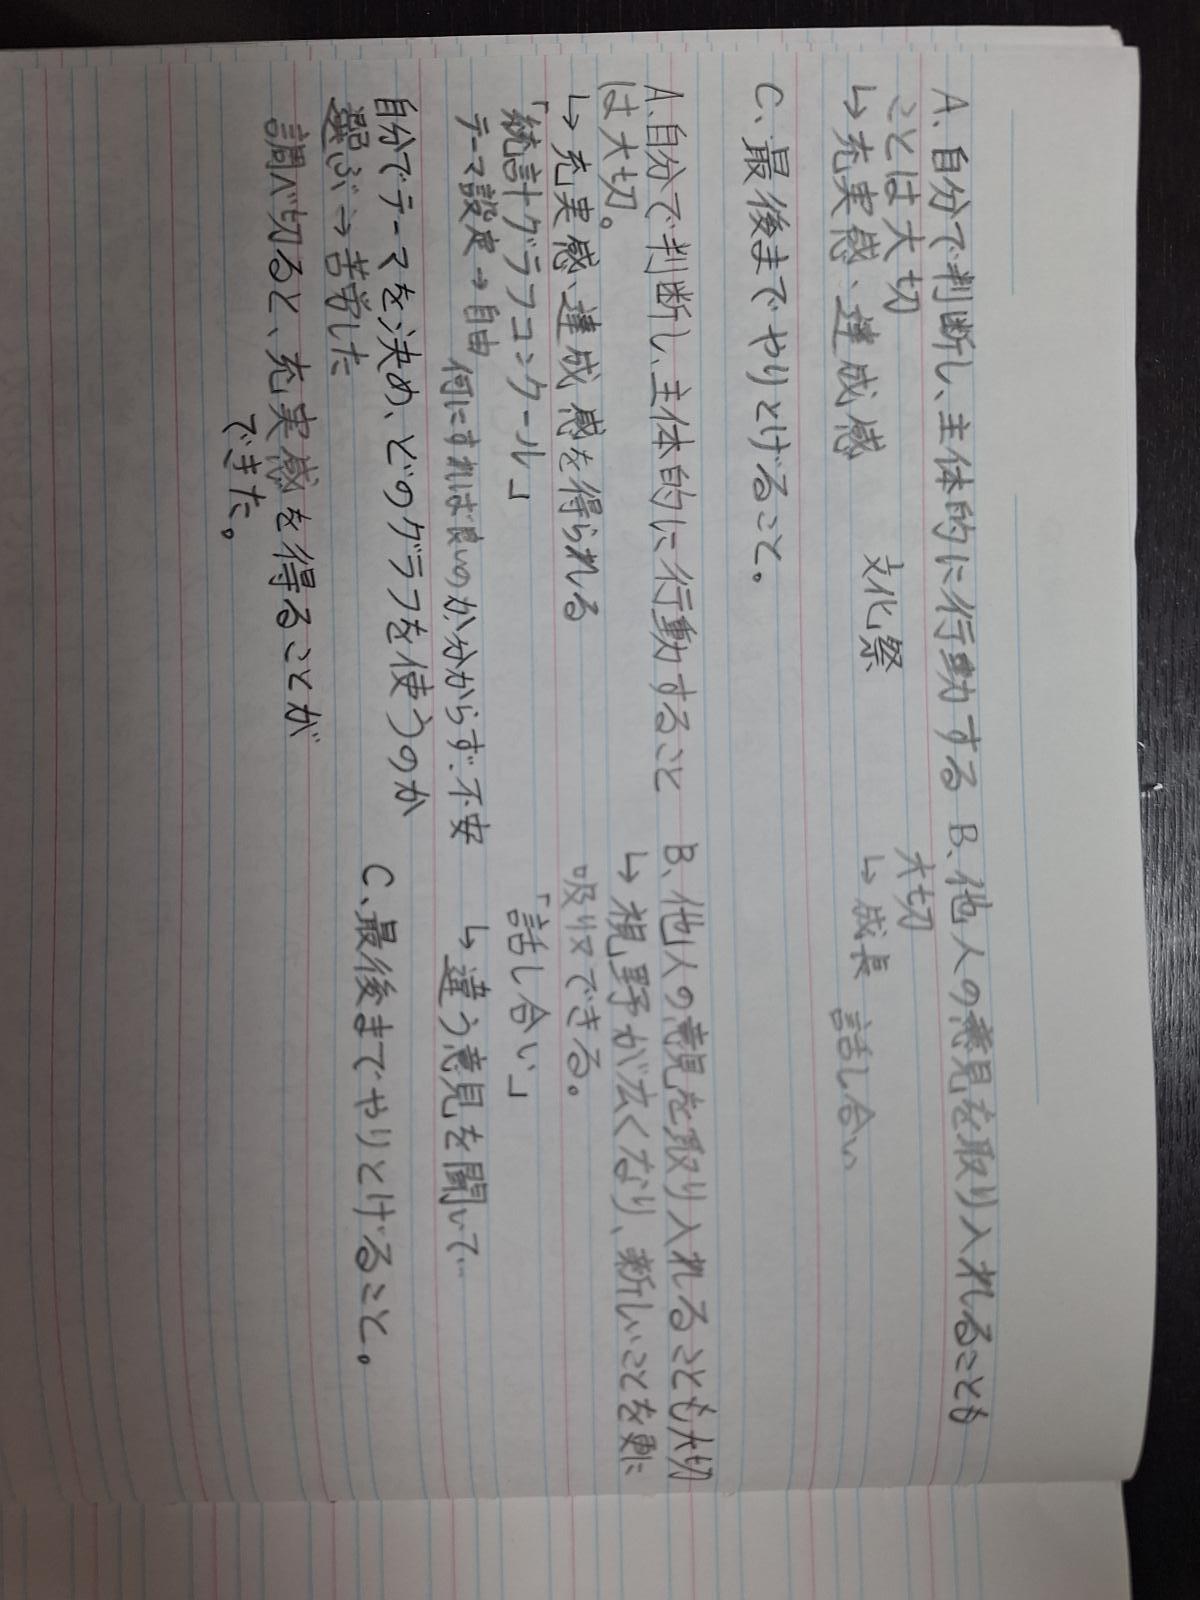 A、自分で判断し、主体的に行動する
ことは大切
↳充実感、達成感
文化祭
B、他人の意見を取り入れることも
大切
↳成長
話し合い
C、最後までやりとげること。
A、自分で判断し、主体的に行動すること
は大切。
↳充実感、達成感を得られる
「統計グラフコンクール」
テーマ設定→自由
何にすれば良いのか分からず、不安
自分でテーマを決め、どのグラフを使うのか
選ぶ→苦労した
調べ切ると、充実感を得ることが
できた。
B、他人の意見を取り入れることも大切
↳視野が広くなり、新しいことを更に
吸収できる。
「話し合い」
↳違う意見を聞いて…
C、最後までやりとげること。